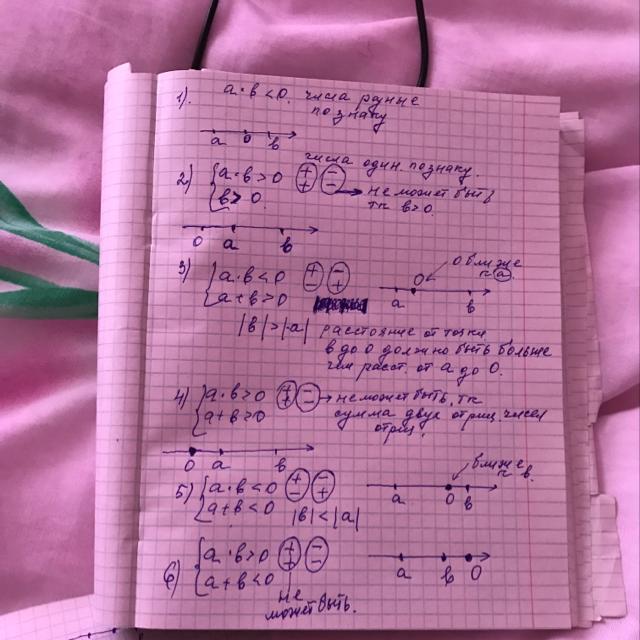 1). a·b<0. числа разные
по знаку
a 0 b
числа один. по знаку.
2) { a·b>0 (+ +) (− −) → не может быть
b>0. тк b>0.
0 a b
3) { a·b<0 (+ −) (− +)
a+b>0
0 ближе
к a.
a 0 b
|b|>|a| расстояние от точки
b до 0 должно быть больше
чем расст. от a до 0.
4) { a·b>0 (+ +) (− −) → не может быть, тк
a+b>0 сумма двух отриц. чисел
отриц.
0 a b
5) { a·b<0 (+ −) (− +)
a+b<0 |b|<|a|
ближе
к b.
a 0 b
6) { a·b>0 (+ +) (− −)
a+b<0
не
может быть.
a b 0